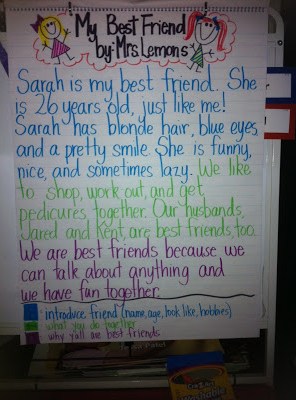 My Best Friend
by: Mrs. Lemons
Sarah is my best friend. She
is 26 years old, just like me!
Sarah has blonde hair, blue eyes
and a pretty smile. She is funny,
nice, and sometimes lazy. We like
to shop, work out, and get
pedicures together. Our husbands,
Jared and Kent, are best friends, too.
We are best friends because we
can talk about anything and
we have fun together.
introduce friend (name, age, look like, hobbies)
what you do together
why y'all are best friends